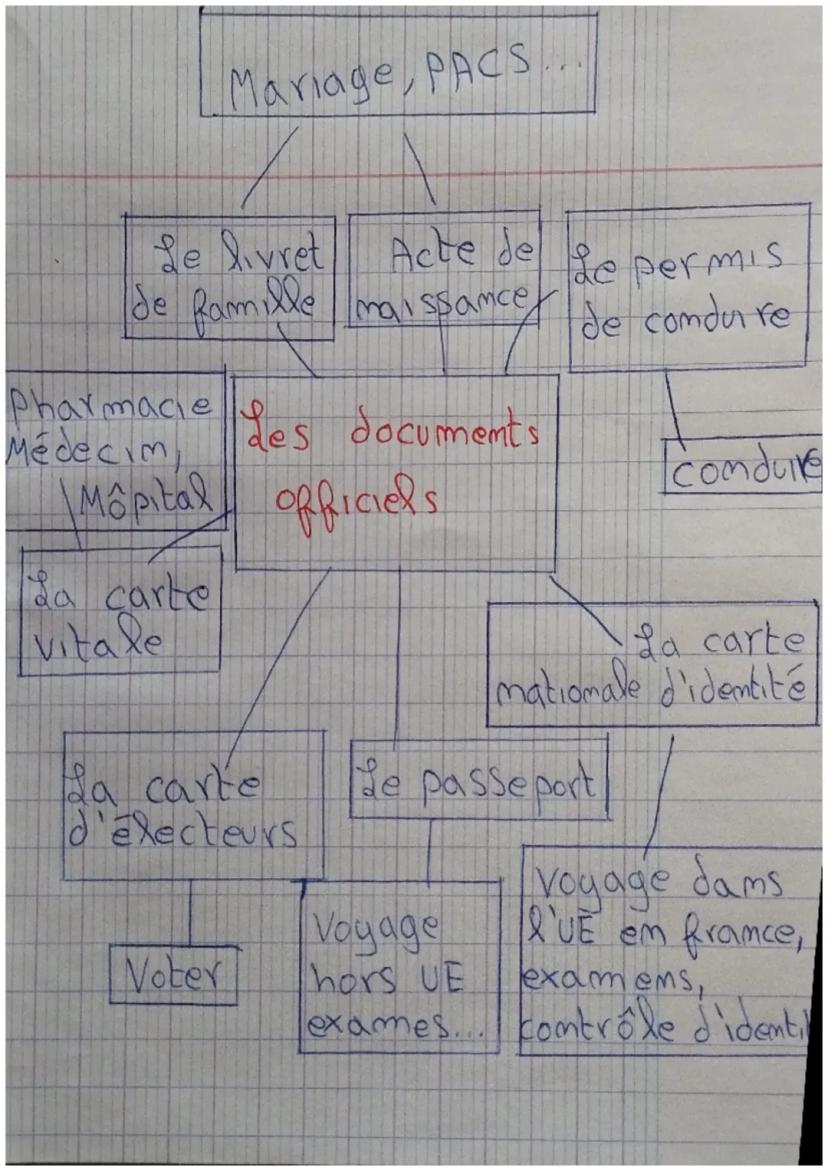 Mariage, PACS...
Le livret
de famille
Acte de
naissance
Le permis
de conduire
Pharmacie
Médecin,
Hôpital
Les documents
officiels
conduire
La carte
vitale
La carte
nationale d'identité
La carte
d'électeurs
Le passeport
Voter
Voyage
hors UE
exames...
Voyage dans
l'UE en france,
examens,
contrôle d'identi